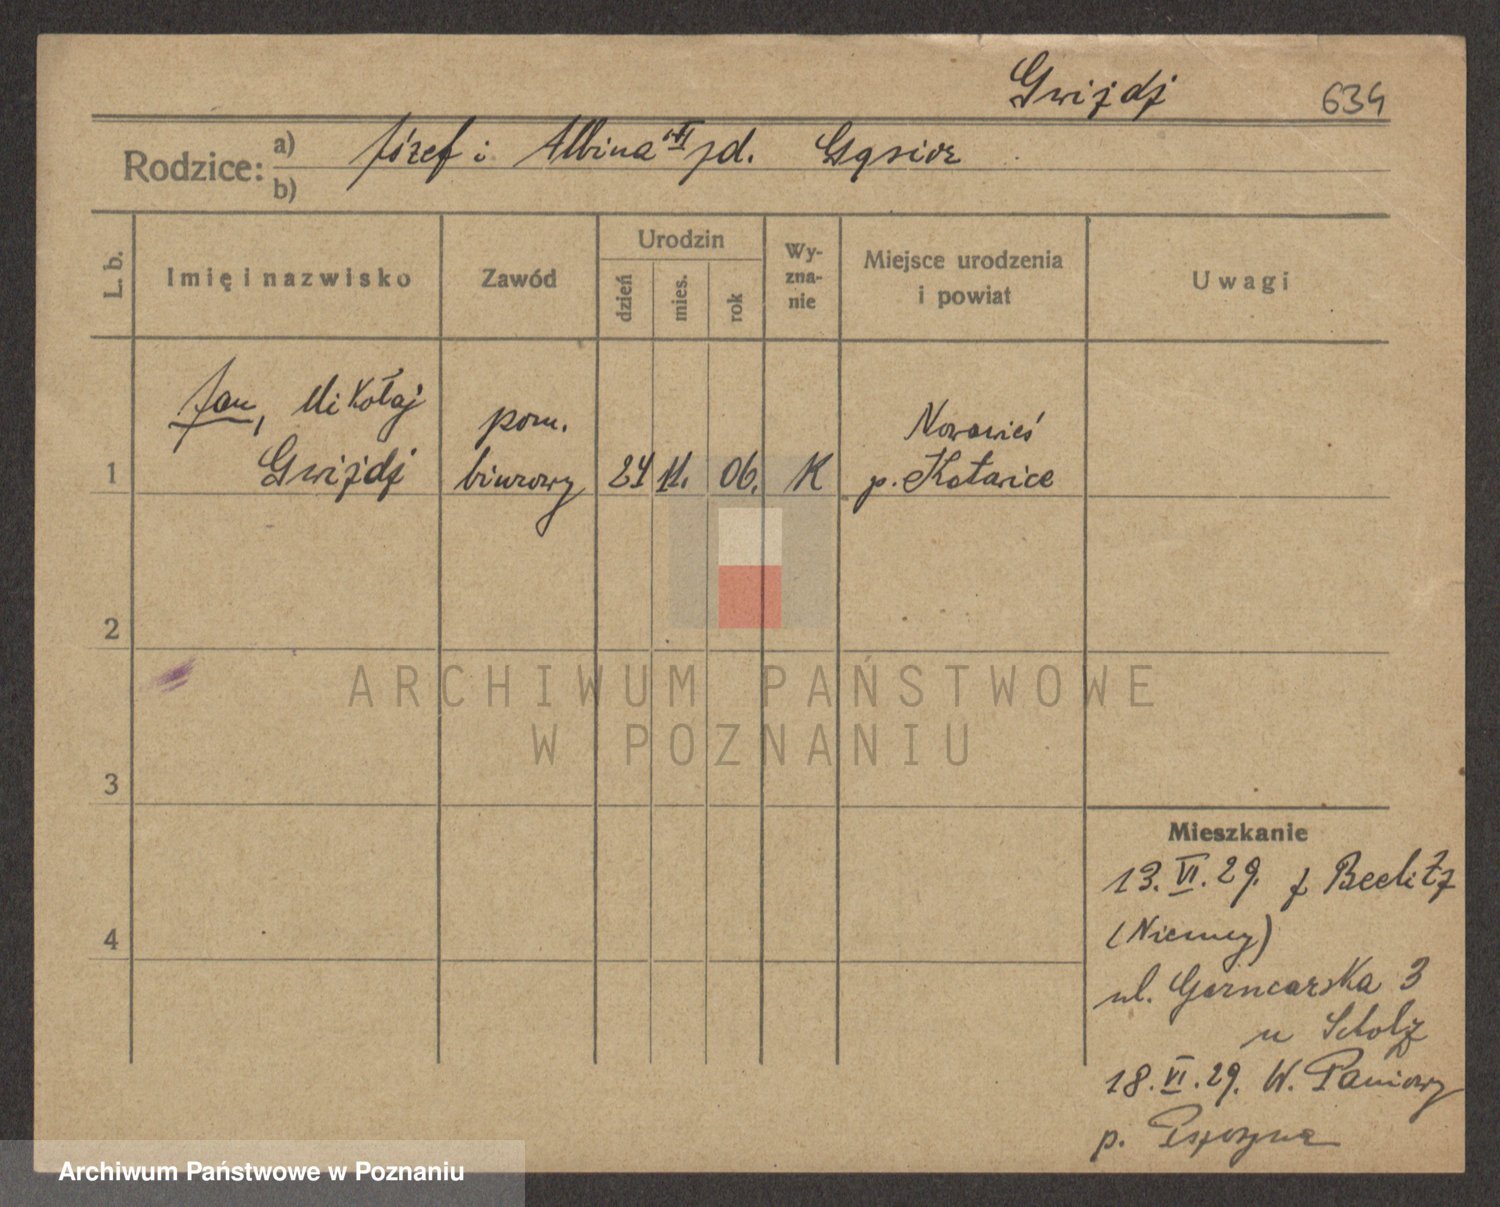 Gwiżdż 634
Rodzice: a) Józef i Albina zd. Gąsior
b)
L. b. Imię i nazwisko Zawód Urodzin dzień mies. rok Wy-zna-nie Miejsce urodzenia i powiat Uwagi
Jan, Mikołaj pom. Nowawieś
1 Gwiżdż biurowy 24 11. 06. K p. Katowice
2
3
4
ARCHIWUM PAŃSTWOWE
W POZNANIU
Mieszkanie
13. VI. 29. z Beelitz
(Niemcy)
ul. Garncarska 3
u Scholz
18. VI. 29. W. Paniowy
p. Pszczyna
Archiwum Państwowe w Poznaniu